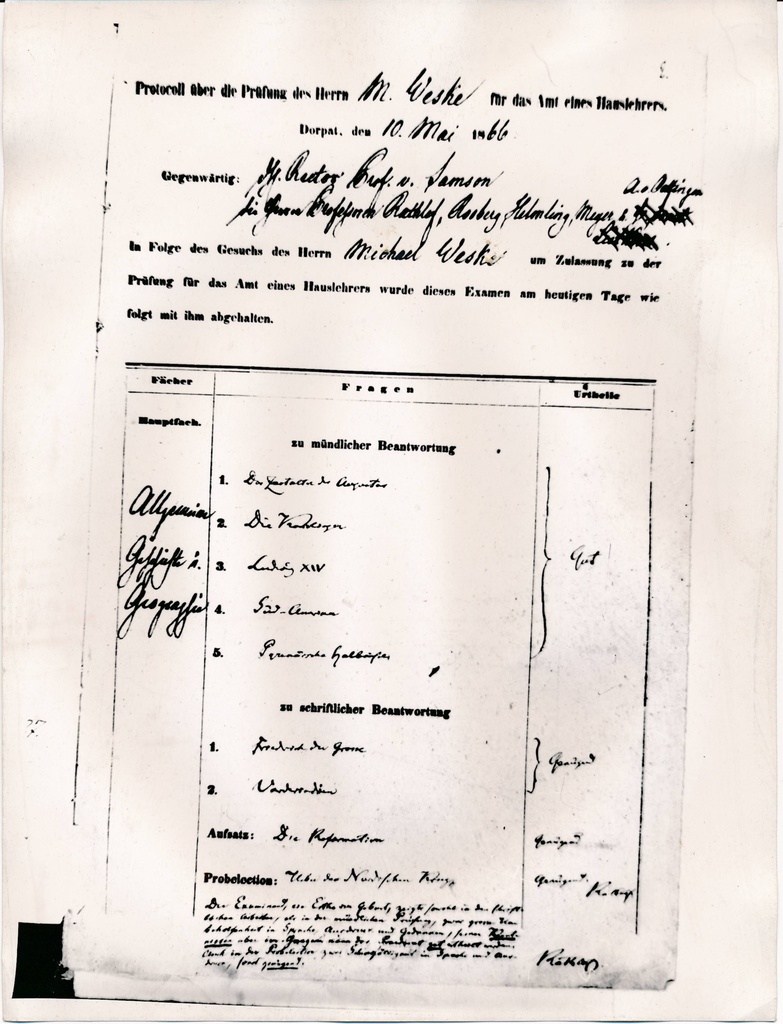 Protocoll über die Prüfung des Herrn M. Weske für das Amt eines Hauslehrers.
Dorpat, den 10. Mai 1866
Gegenwärtig: Rector Prof. v. Samson
Professoren Rathlef, Rosberg, Helmling, Meyer,
In Folge des Gesuchs des Herrn Michael Weske um Zulassung zu der
Prüfung für das Amt eines Hauslehrers wurde dieses Examen am heutigen Tage wie
folgt mit ihm abgehalten.
Fächer Fragen Urtheile
Hauptfach.
zu mündlicher Beantwortung
1. Das Zeitalter des Augustus
Allgemeine 2. Die
Geschichte u. 3. Ludwig XIV Gut
Geographie 4. Süd-Amerika
5. Pyrenäische Halbinsel
zu schriftlicher Beantwortung
1. Friedrich der Grosse Genügend
2. Vorderindien
Aufsatz: Die Reformation Genügend
Probelection: Ueber den Nordischen Krieg Genügend.
Der Examinand, ein Esthe von Geburt, zeigte sowohl in den schrift-
lichen Arbeiten, als in der mündlichen Prüfung, zwar grosse Unbe-
holfenheit in Sprache, Ausdruck und Gedanken, seine Kennt-
nisse aber im Ganzen gut
Auch in der Probelection zwar in Sprache und Aus-
druck, sonst genügend.